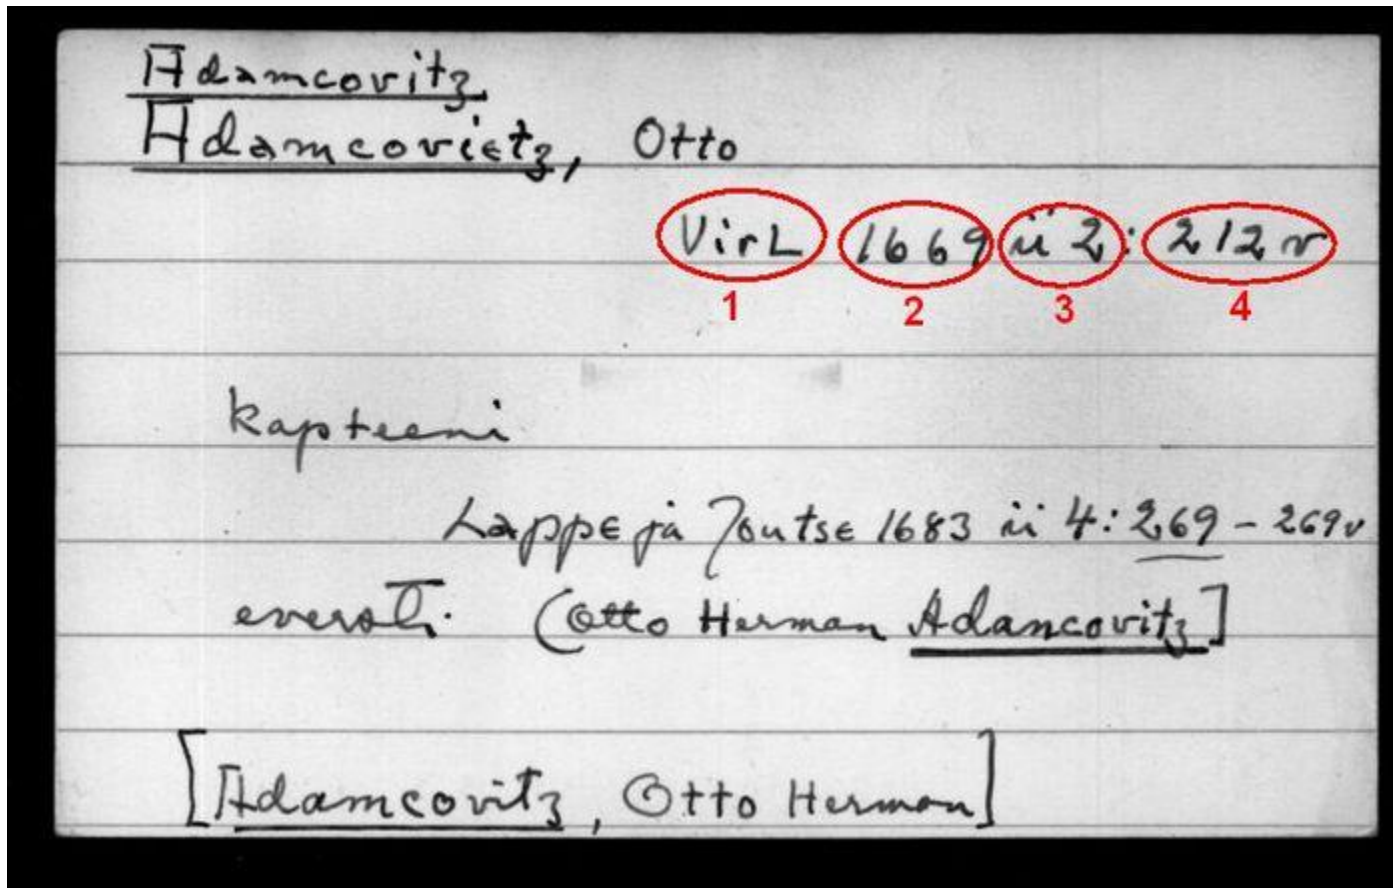 Adamcovitz
Adamcovietz, Otto
VirL 1669 ii 2: 212 v
1 2 3 4
kapteeni
Lappe ja Joutse 1683 ii 4: 269 - 269v
eversti. (Otto Herman Adamcovitz]
[Adamcovitz, Otto Herman]